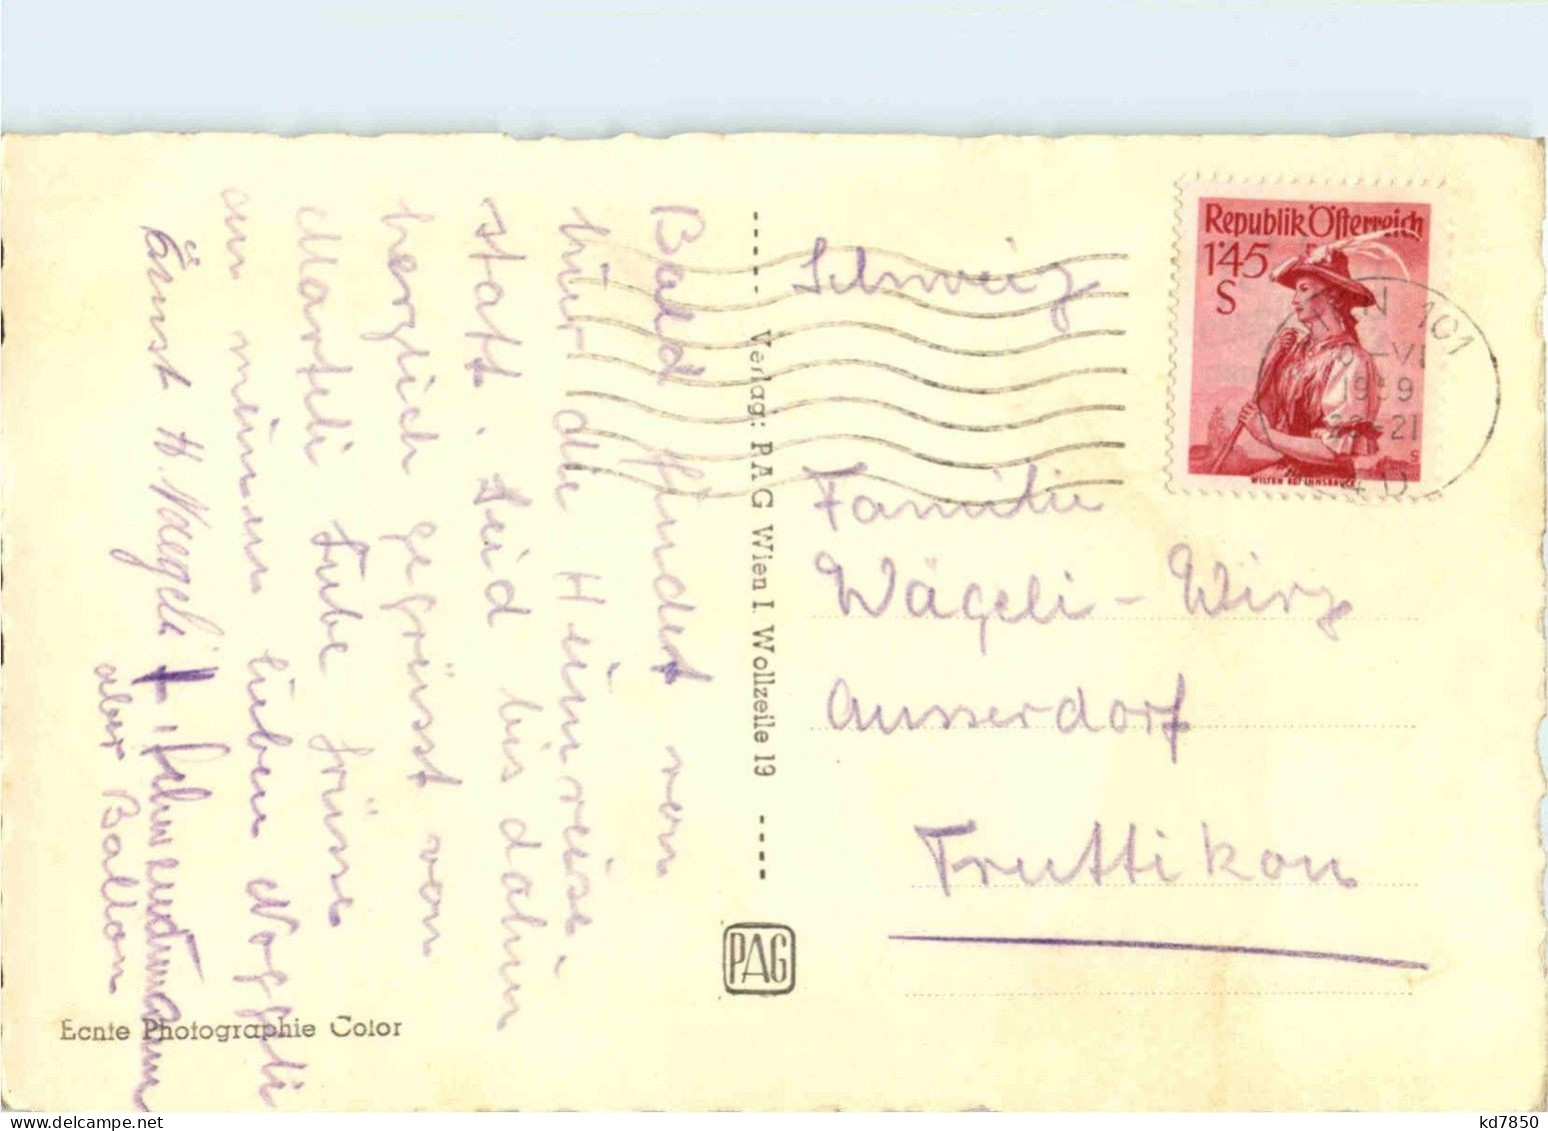 Bald findet von
hier die Heimreise
statt. Seid bis dahin
herzlich gegrüsst von
Marteli Liebe Grüsse
an meinen lieben Noggeli
Ernst H. Naegeli +
aber Ballon
Verlag: PAG Wien I. Wollzeile 19
PAG
Echte Photographie Color
Republik Österreich
1'45
S
WILTEN BEI INNSBRUCK
WIEN 101
-VI
1959
20-21
Schweiz
Familie
Wägeli-Wirz
Ausserdorf
Truttikon
kd7850